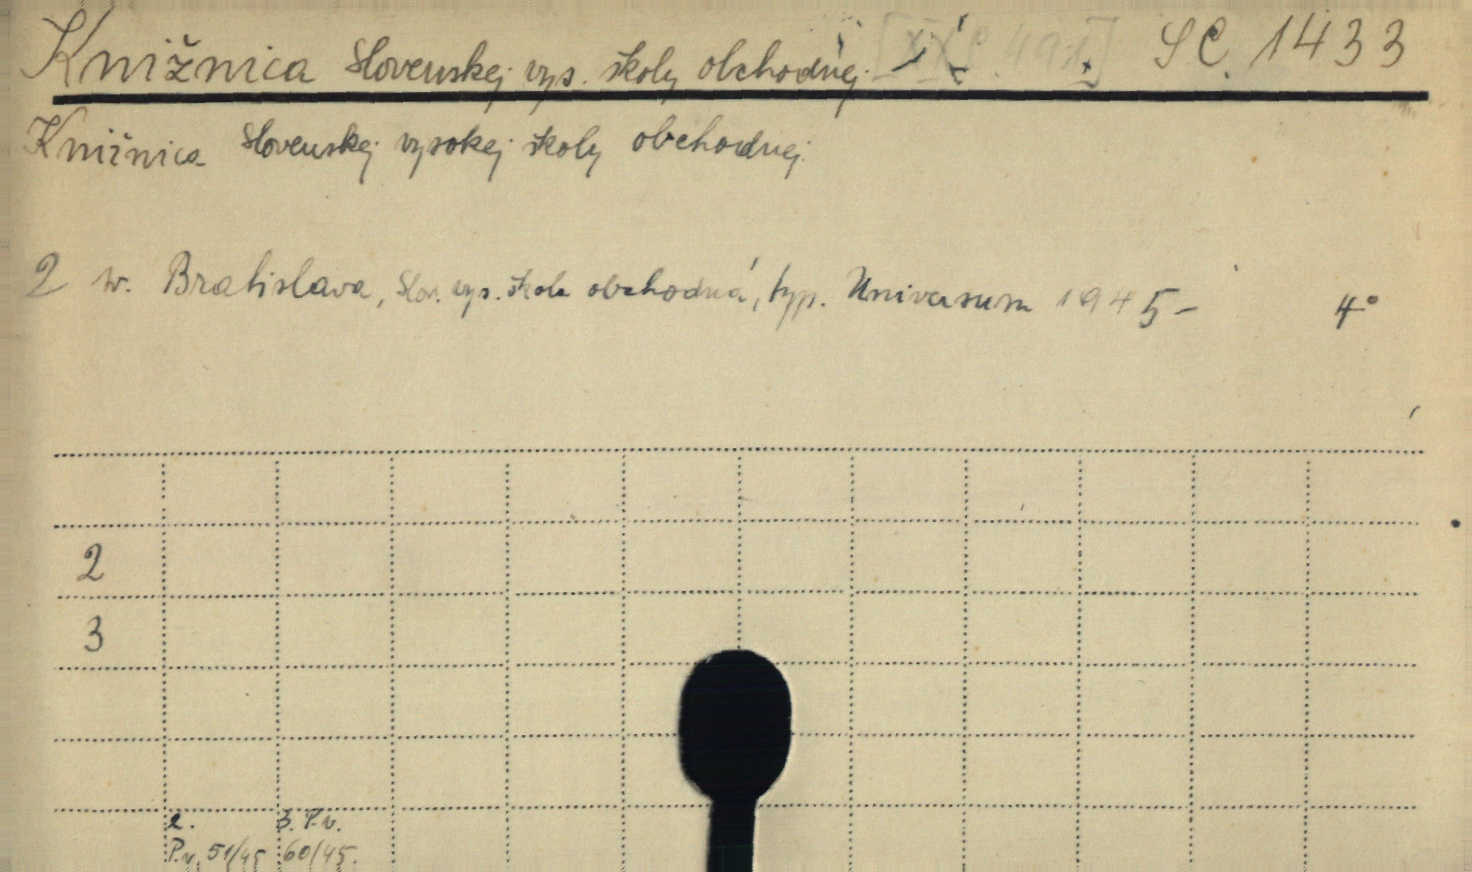 Knižnica Slovenskej vys. školy obchodnej. SC. 1433
Knižnica Slovenskej vysokej školy obchodnej.
2 w. Bratislava, Slov. vys. škola obchodná, typ. Universum 1945- 4°
2
3
2. 3. P.v.
P.v. 51/45 60/45.